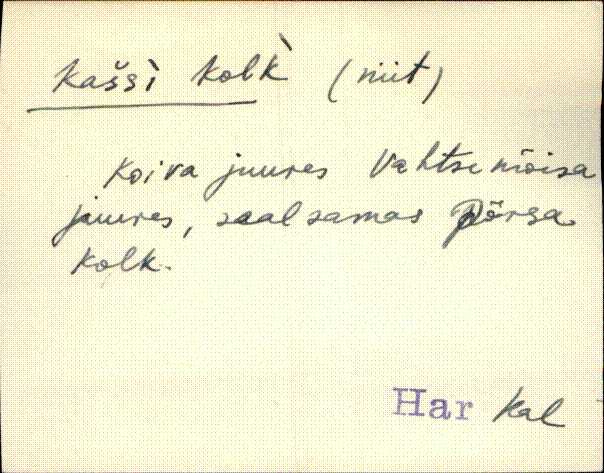 Kašši kolk̀ (niit)
Koiva juures Vahtse mõisa
juures, sealsamas Põrsa
kolk.
Har Kal